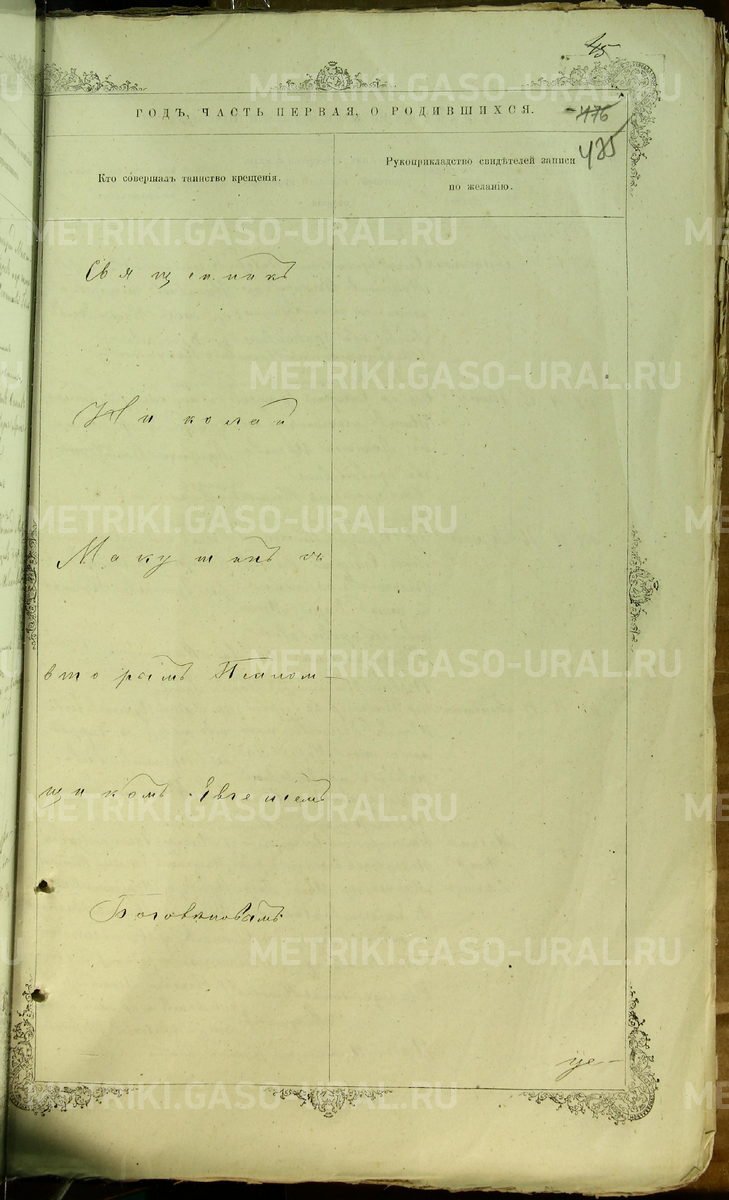 45
ГОДЪ, ЧАСТЬ ПЕРВАЯ, О РОДИВШИХСЯ.
476
435
Кто совершалъ таинство крещенія.
Рукоприкладство свидѣтелей записи
по желанію.
METRIKI.GASO-URAL.RU
Священникъ
Николай
Макушинъ съ
вторымъ Псалом-
щикомъ Евгеніемъ
це-